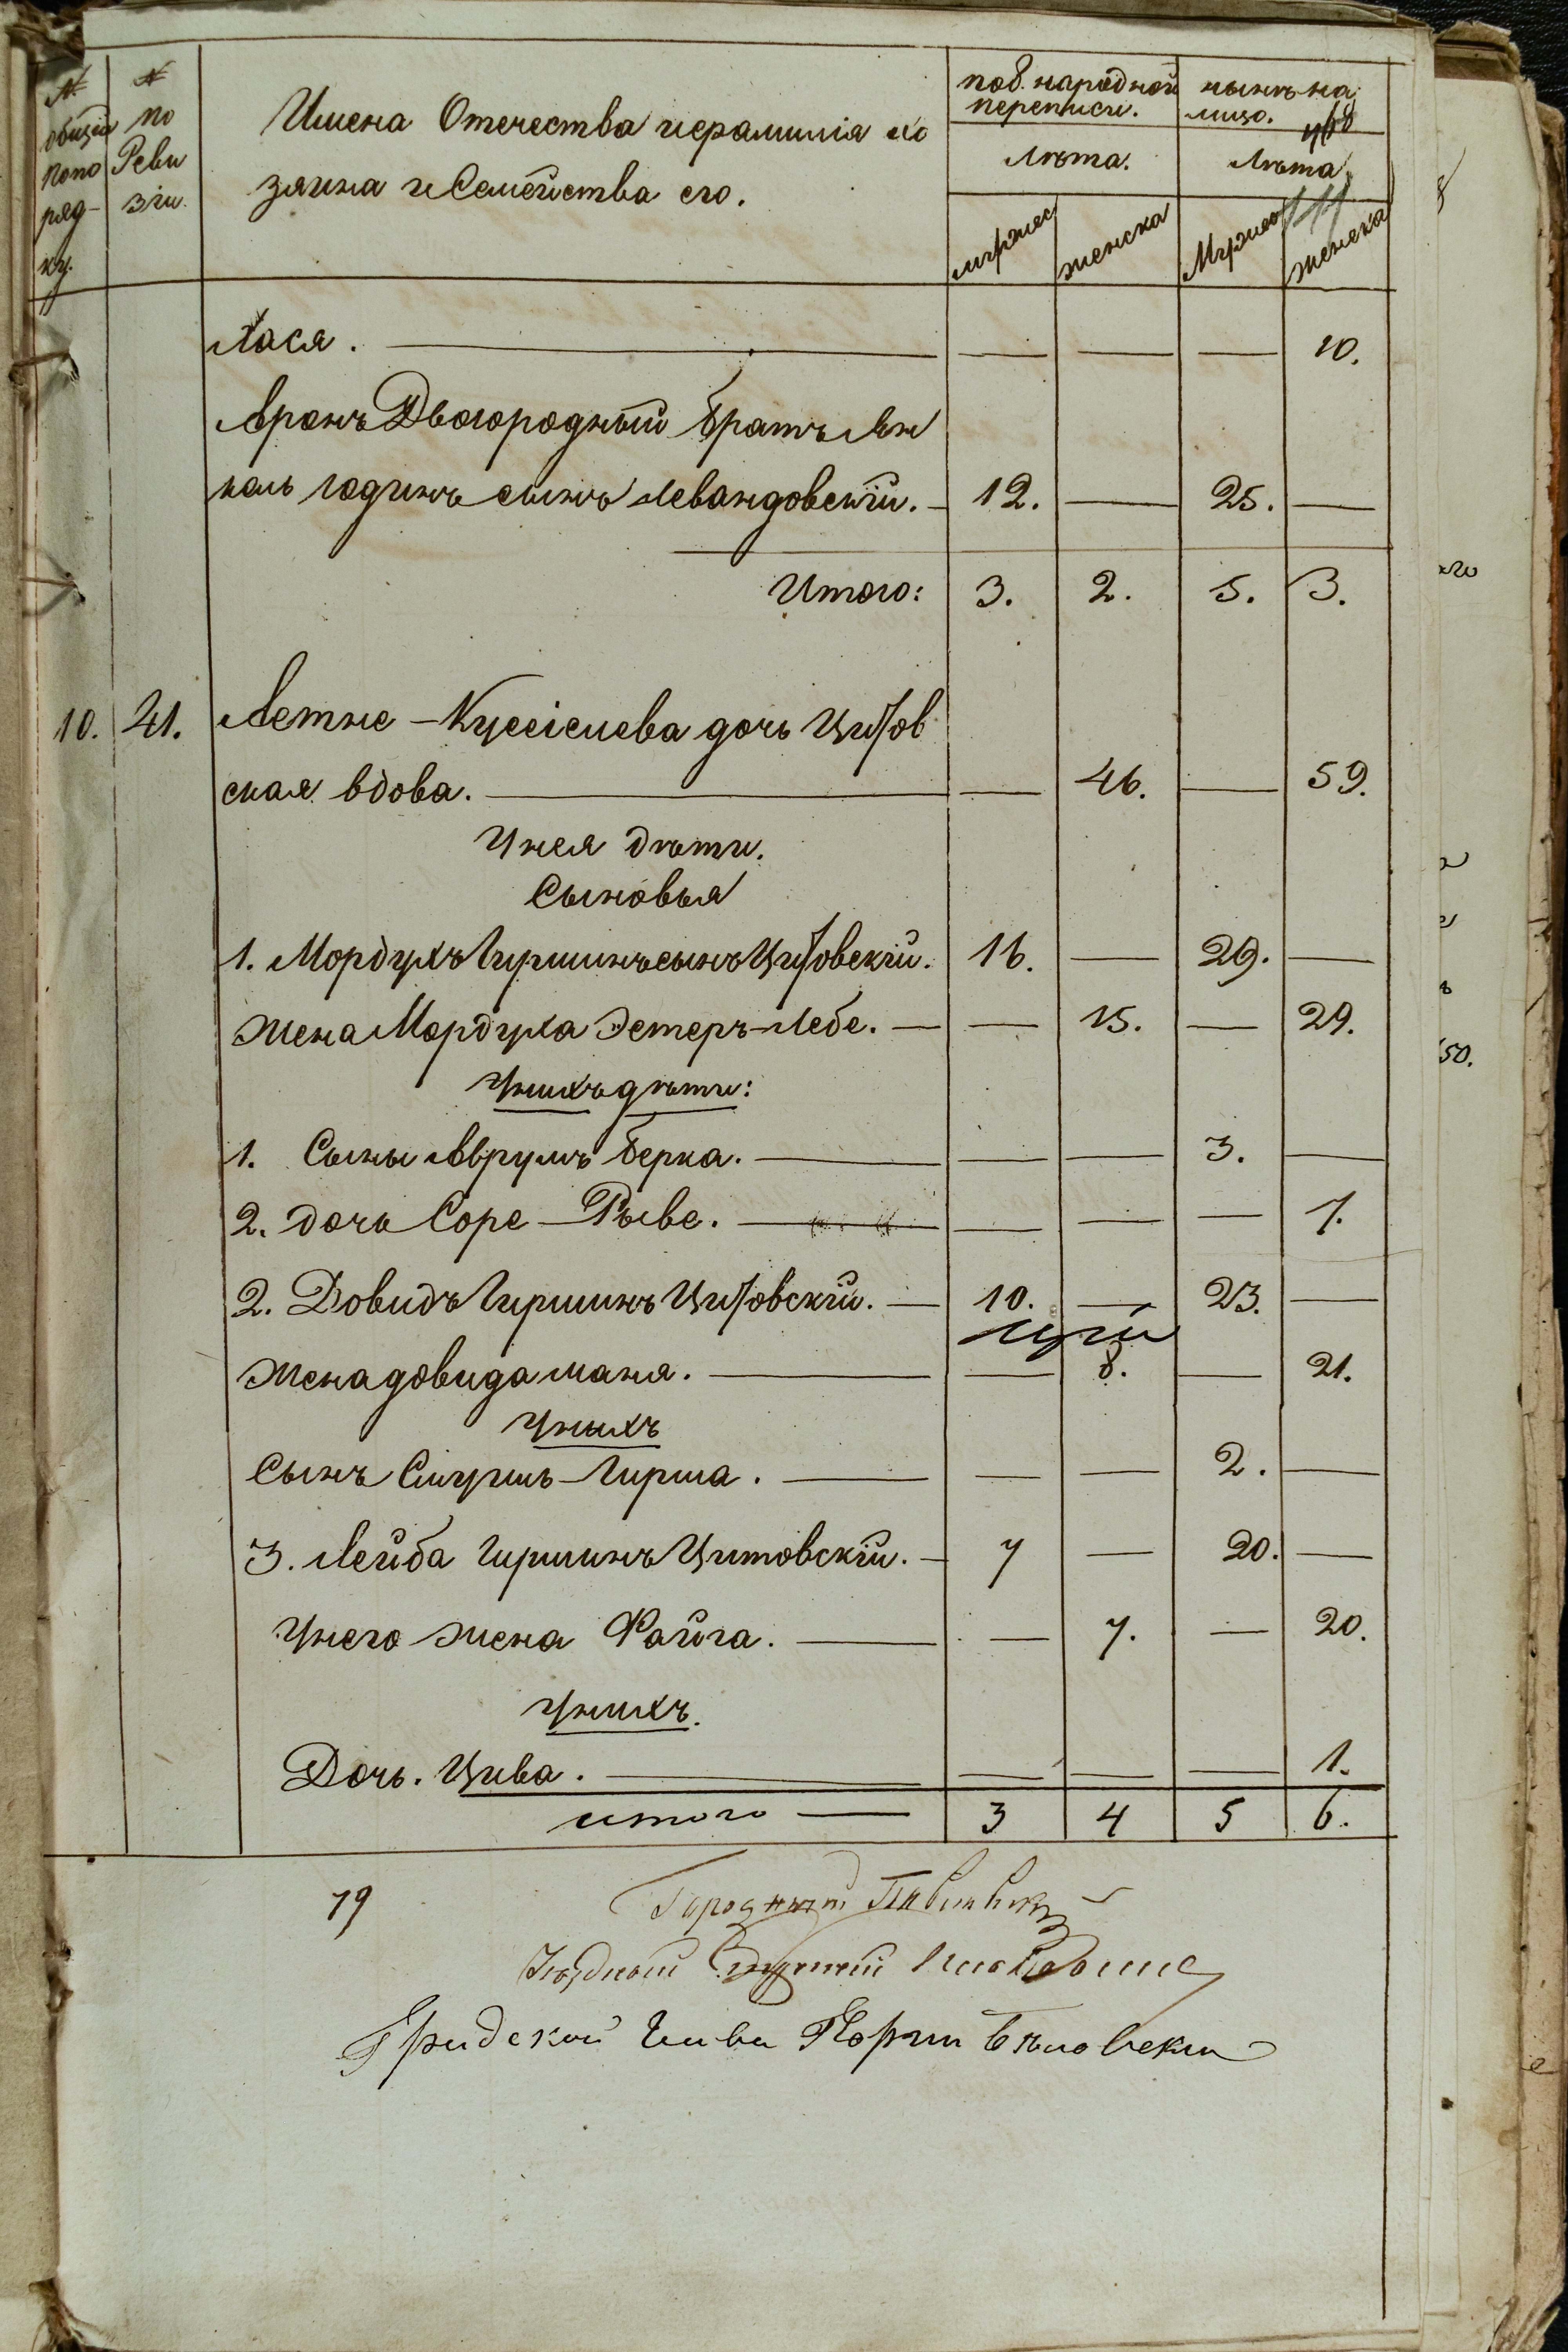 № общій по по ряд- ку.
№ по Реви зіи.
Имена Отечества ифамилія хо
зяина иСемейства его.
по 8. народной переписи.
Лѣта.
мужес
женска
нынѣ на лицо.
Лѣта
Мужес
женска
Хася. — — — — 10.
Аронъ Двоюродный братъ Ян
кель Іодинъ сынъ Левандовскій. — 12. — 25. —
Итого: 3. 2. 5. 3.
10. 41. Летне - Кусіелева дочь Цитов
ская вдова. — — 46. — 59.
Унея дѣти.
Сыновья
1. Мордухъ Гиршинъ сынъ Цитовскій. 16. — 29. —
Жена Мордуха Эстеръ-Лебе. — — 15. — 29.
Унихъ дѣти:
1. Сыны Аврумъ Берка. — — — 3. —
2. дочь Соре - Рыве. — — — — 7.
2. Довидъ Гиршинъ Цитовскій. — 10. — 23. —
Жена довида маня. — — 8. — 21.
Уныхъ
Сынъ Смуршъ - Гирша. — — — 2. —
3. Лейба Гиршинъ Цитовскій. — 7 — 20. —
Унего жена Файга. — — 7. — 20.
Унихъ.
Дочь. Цива. — — — — 1.
итого — 3 4 5 6.
19